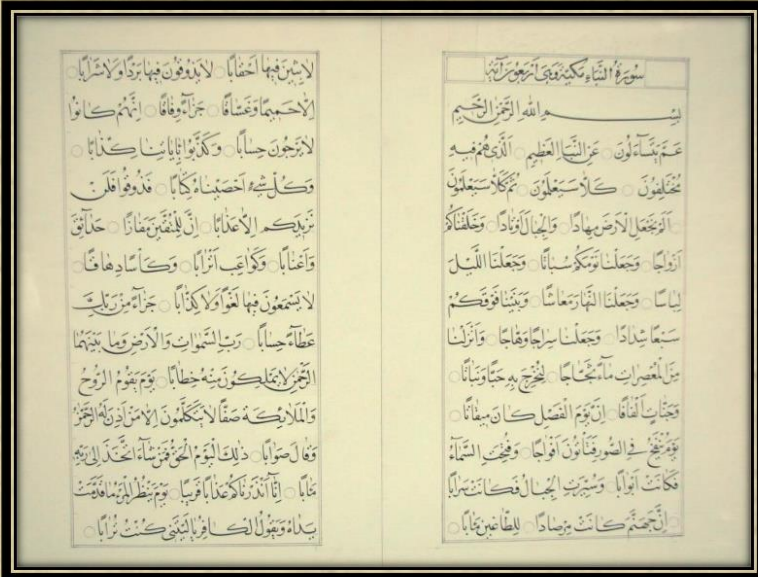 سورة النباء مكية وهى اربعون آية
بسم الله الرحمن الرحيم
عَمَّ يَتَسَاءَلُونَ ○ عَنِ النَّبَإِ الْعَظِيمِ ○ الَّذِى هُمْ فِيهِ
مُخْتَلِفُونَ ○ كَلَّا سَيَعْلَمُونَ ○ ثُمَّ كَلَّا سَيَعْلَمُونَ
○ اَلَمْ نَجْعَلِ الْاَرْضَ مِهَادًا ○ وَالْجِبَالَ اَوْتَادًا ○ وَخَلَقْنَاكُمْ
اَزْوَاجًا ○ وَجَعَلْنَا نَوْمَكُمْ سُبَاتًا ○ وَجَعَلْنَا اللَّيْلَ
لِبَاسًا ○ وَجَعَلْنَا النَّهَارَ مَعَاشًا ○ وَبَنَيْنَا فَوْقَكُمْ
سَبْعًا شِدَادًا ○ وَجَعَلْنَا سِرَاجًا وَهَّاجًا ○ وَاَنْزَلْنَا
مِنَ الْمُعْصِرَاتِ مَاءً ثَجَّاجًا ○ لِنُخْرِجَ بِهِ حَبًّا وَنَبَاتًا ○
وَجَنَّاتٍ اَلْفَافًا ○ اِنَّ يَوْمَ الْفَصْلِ كَانَ مِيقَاتًا ○
يَوْمَ يُنْفَخُ فِى الصُّورِ فَتَأْتُونَ اَفْوَاجًا ○ وَفُتِحَتِ السَّمَاءُ
فَكَانَتْ اَبْوَابًا ○ وَسُيِّرَتِ الْجِبَالُ فَكَانَتْ سَرَابًا
○ اِنَّ جَهَنَّمَ كَانَتْ مِرْصَادًا ○ لِلطَّاغِينَ مَآبًا ○
لَابِثِينَ فِيهَا اَحْقَابًا ○ لَا يَذُوقُونَ فِيهَا بَرْدًا وَلَا شَرَابًا ○
اِلَّا حَمِيمًا وَغَسَّاقًا ○ جَزَاءً وِفَاقًا ○ اِنَّهُمْ كَانُوا
لَا يَرْجُونَ حِسَابًا ○ وَكَذَّبُوا بِآيَاتِنَا كِذَّابًا ○
وَكُلَّ شَىْءٍ اَحْصَيْنَاهُ كِتَابًا ○ فَذُوقُوا فَلَنْ
نَزِيدَكُمْ اِلَّا عَذَابًا ○ اِنَّ لِلْمُتَّقِينَ مَفَازًا ○ حَدَائِقَ
وَاَعْنَابًا ○ وَكَوَاعِبَ اَتْرَابًا ○ وَكَأْسًا دِهَاقًا ○
لَا يَسْمَعُونَ فِيهَا لَغْوًا وَلَا كِذَّابًا ○ جَزَاءً مِنْ رَبِّكَ
عَطَاءً حِسَابًا ○ رَبِّ السَّمٰوَاتِ وَالْاَرْضِ وَمَا بَيْنَهُمَا
الرَّحْمٰنِ لَا يَمْلِكُونَ مِنْهُ خِطَابًا ○ يَوْمَ يَقُومُ الرُّوحُ
وَالْمَلَائِكَةُ صَفًّا لَا يَتَكَلَّمُونَ اِلَّا مَنْ اَذِنَ لَهُ الرَّحْمٰنُ
وَقَالَ صَوَابًا ○ ذٰلِكَ الْيَوْمُ الْحَقُّ فَمَنْ شَاءَ اتَّخَذَ اِلٰى رَبِّهِ
مَآبًا ○ اِنَّا اَنْذَرْنَاكُمْ عَذَابًا قَرِيبًا ○ يَوْمَ يَنْظُرُ الْمَرْءُ مَا قَدَّمَتْ
يَدَاهُ وَيَقُولُ الْكَافِرُ يَا لَيْتَنِى كُنْتُ تُرَابًا ○